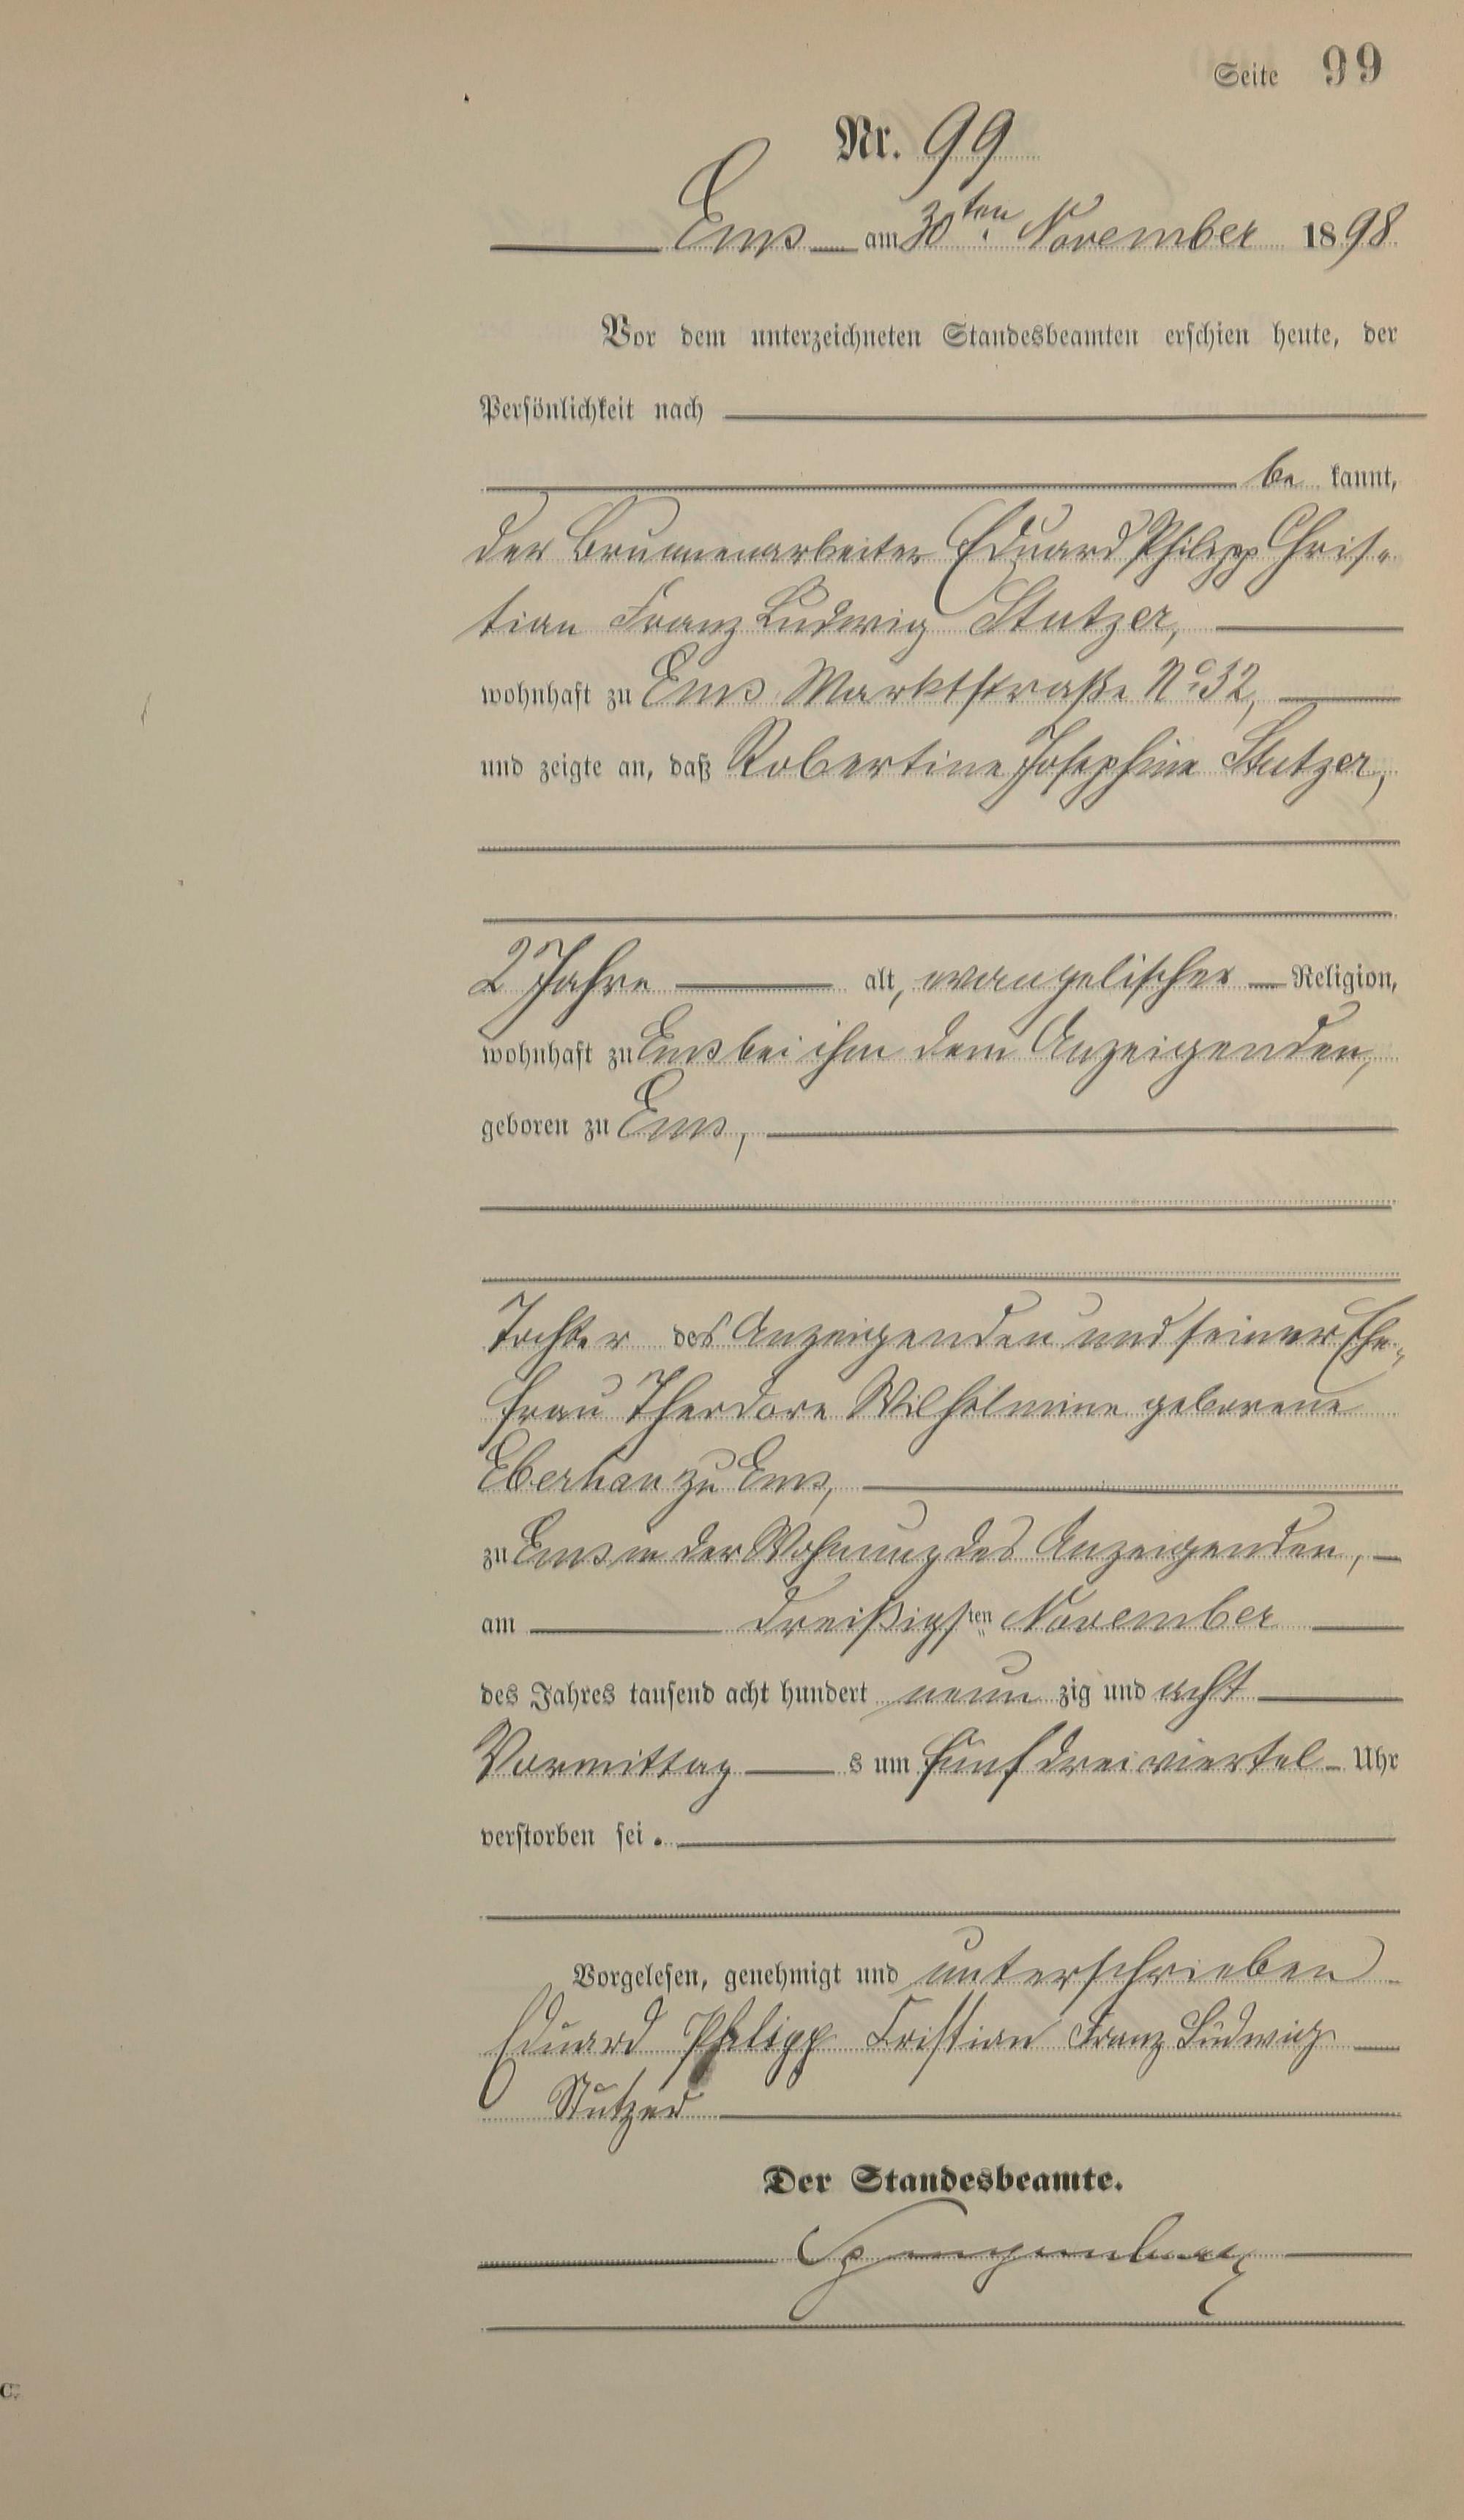 Seite 99
Nr. 99
Ems am 30ten November 1898
Vor dem unterzeichneten Standesbeamten erschien heute, der
Persönlichkeit nach
be kannt,
der Brunnenarbeiter Eduard Philipp Chris-
tian Franz Ludwig Stutzer,
wohnhaft zu Ems Marktstraße No 32,
und zeigte an, daß Robertine Josephine Stutzer,
2 Jahre alt, evangelischer Religion,
wohnhaft zu Ems bei ihm dem Anzeigenden,
geboren zu Ems,
Tochter des Anzeigenden und seiner Ehe-
frau Theodore Wilhelmine geborene
zu Ems,
zu Ems in der Wohnung des Anzeigenden,
am dreißigsten November
des Jahres tausend acht hundert neun zig und acht
Vormittag s um fünf dreiviertel Uhr
verstorben sei.
Vorgelesen, genehmigt und unterschrieben
Eduard Philipp Cristian Franz Ludwig
Stutzer
Der Standesbeamte.
C.